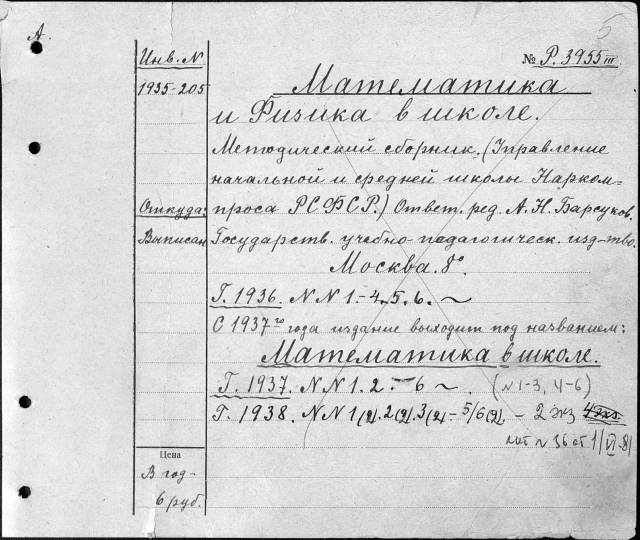 5
А.
Инв. N
№ Р. 3955 III
1935-205
Математика
и Физика в школе.
Методический сборник. (Управление
начальной и средней школы Нарком-
Откуда: проса РСФСР.) Ответ. ред. А. Н. Барсуков.
Выписан Государств. учебно-педагогическ. изд-тво.
Москва. 8°
Г. 1936. NN 1.-4. 5. 6. ~
С 1937го года издание выходит под названием:
Математика в школе.
Г. 1937. NN 1. 2. - 6 ~. (N 1-3, 4-6)
Г. 1938. NN 1(2). 2(2). 3(2) - 5/6(2). - 2 экз 4 экз.
N 36 от 1/VI-81
Цена
В год-
6 руб.